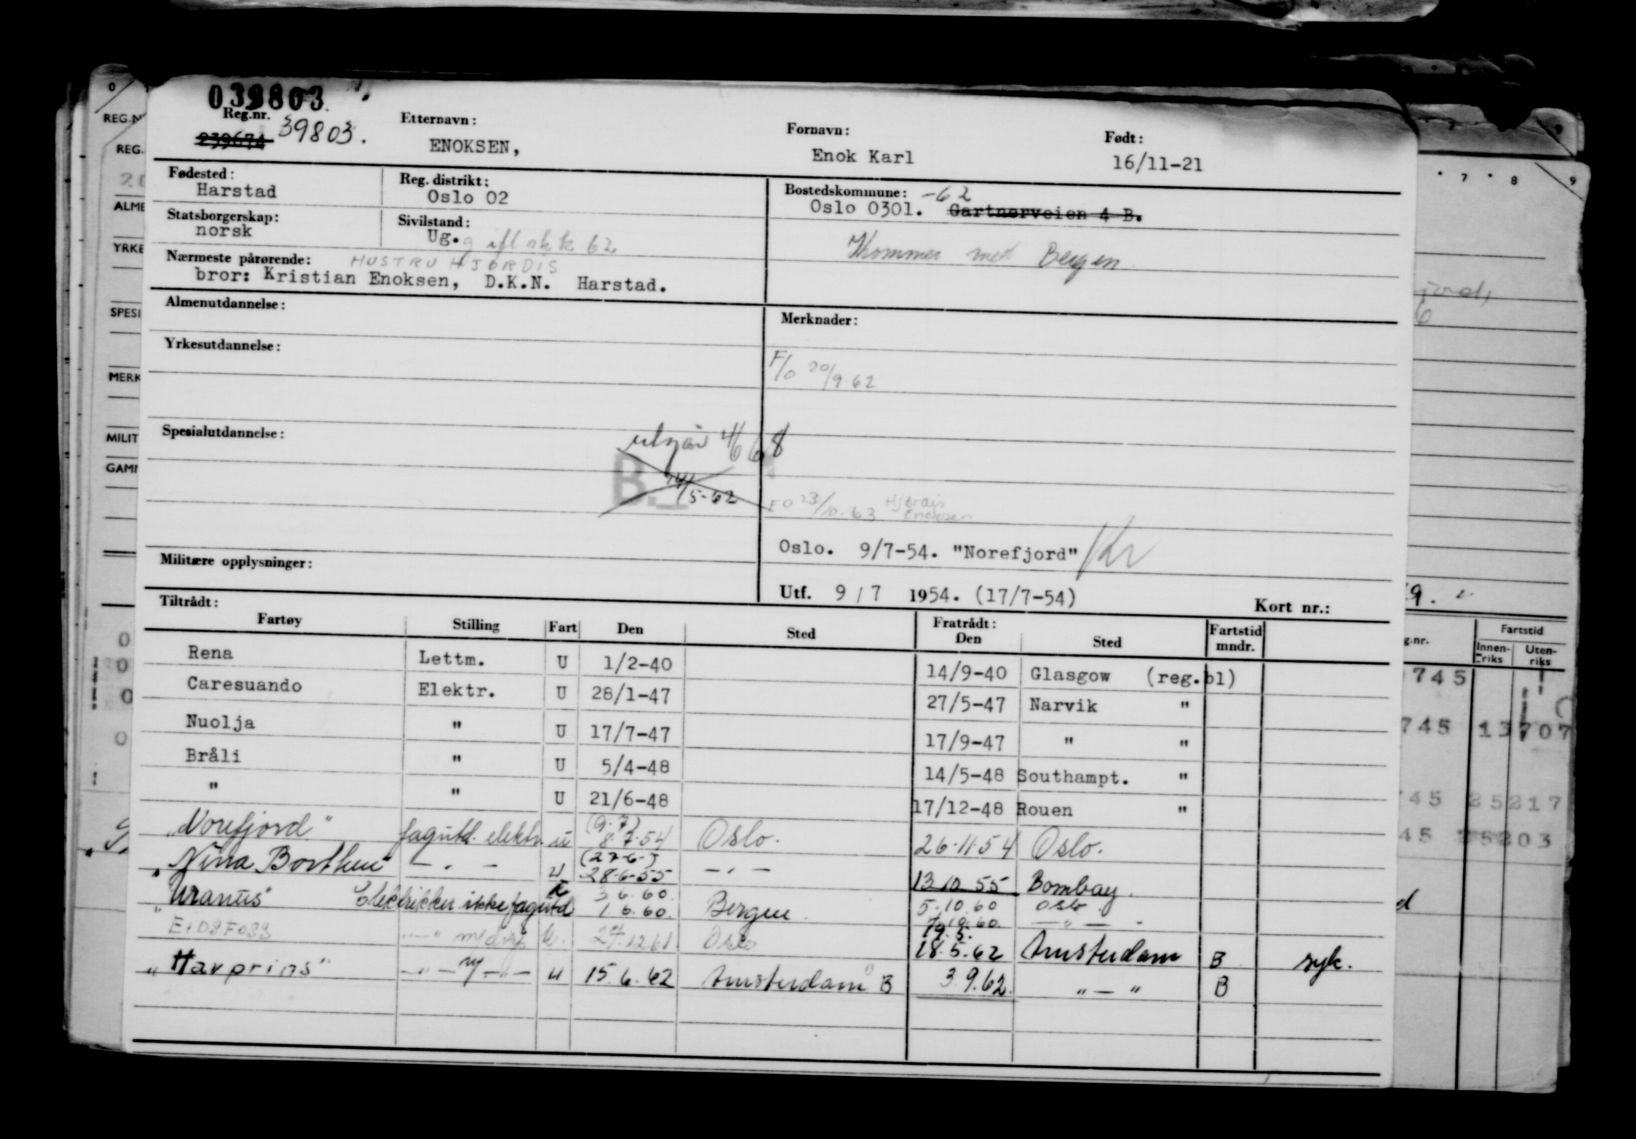 039803
Reg.nr. 39803.
239674
Etternavn:
ENOKSEN,
Fornavn:
Enok Karl
Født:
16/11-21
Fødested:
Harstad
Reg. distrikt:
Oslo 02
Bostedskommune: -62
Oslo 0301. Gartnerveien 4 B.
Statsborgerskap:
norsk
Sivilstand:
Ug. gift 62
Kommer med Bergen
Nærmeste pårørende: HUSTRU HJØRDIS
bror: Kristian Enoksen, D.K.N. Harstad.
Almenutdannelse:
Merknader:
Yrkesutdannelse:
F/o 20/9 62
Spesialutdannelse:
utgår 4/6 68
B.
5-62
FO 23/10.63 Hjørdis Enoksen
Oslo. 9/7-54. "Norefjord"
Militære opplysninger:
Utf. 9 / 7 1954. (17/7-54)
Kort nr.:
Tiltrådt:
Fratrådt:
Fartøy Stilling Fart Den Sted Den Sted Fartstid mndr.
Rena Lettm. U 1/2-40 14/9-40 Glasgow (reg.bl)
Caresuando Elektr. U 28/1-47 27/5-47 Narvik "
Nuolja " U 17/7-47 17/9-47 " "
Bråli " U 5/4-48 14/5-48 Southampt. "
" " U 21/6-48 17/12-48 Rouen "
"Norefjord" fagutd. elektr. u (9.7) 8.7.54 Oslo. 26.11.54 Oslo.
"Nina Borthen" — " — u (27.6.) 28.6.55 — " — 13.10.55 Bombay.
"Uranus" Elektriker ikke fagutd u 3.6.60. 1.6.60. Bergen. 5.10.60 Oslo
7.10.60. — " —
EIDSFOSS 27.12.61 Oslo 19.5. 18.5.62 Amsterdam B syk.
"Havprins" — " — " — u 15.6.62 Amsterdam B 3.9.62. " — " B
REG.
ALME
YRKE
SPESI
MERK
MILIT
GAMM
7 8 9
g.nr.
Fartstid
Innen-riks
Uten-riks
745
745 13707
745 25217
45 25203